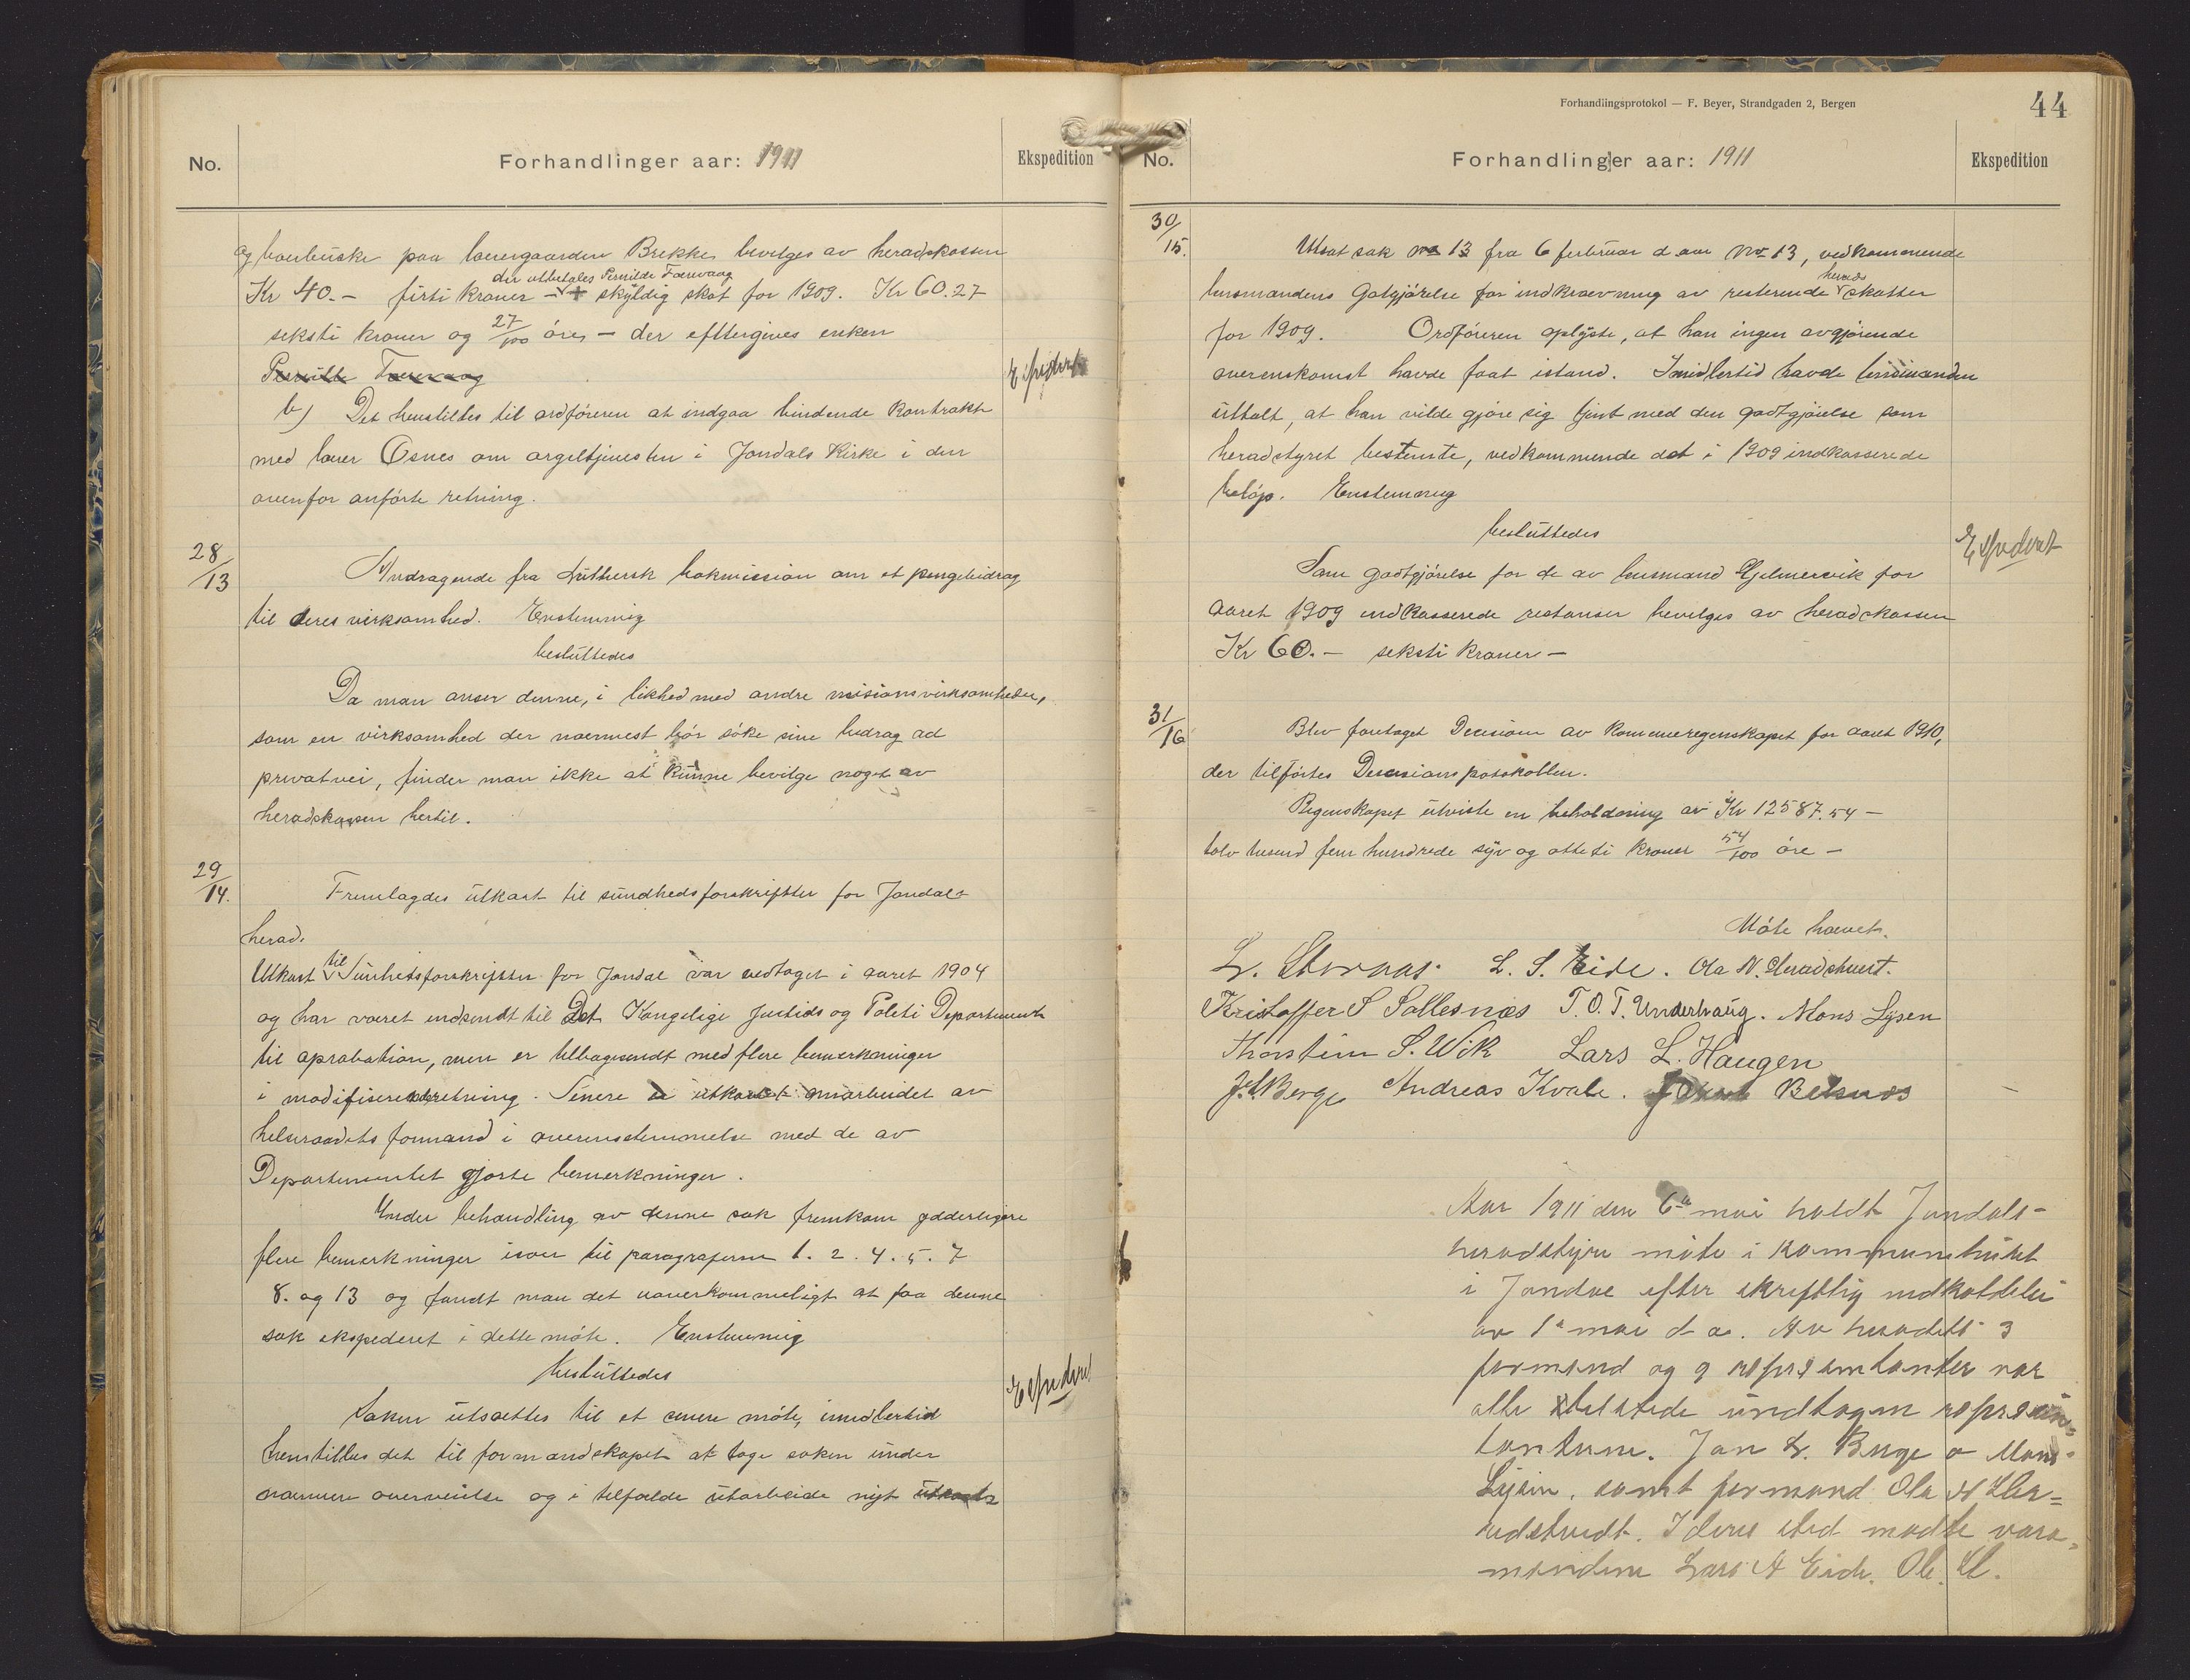 No.
Forhandlinger aar: 1911
Ekspedition
og bærbuske paa lærergaarden Brekke bevilges av heradskassen
der utbetales Pernilde Torevaag
Kr 40.- firti kroner - skyldig skat for 1909. Kr 60.27
seksti kroner og 27/100 øre - der eftergives enken
Pernille Torevaag
Expedert
b) Det henstilles til ordføreren at indgaa bindende kontrakt
med lærer Øsnes om orgeltjenesten i Jondals Kirke i den
ovenfor anførte retning.
28/13
Andragende fra Luthersk bokmission om et pengebidrag
til deres virksomhed. Enstemmig
besluttedes
Da man anser denne, i likhed med andre misionsvirksomheder,
som en virksomhed der nærmest bør søke sine bidrag ad
privat vei, finder man ikke at kunne bevilge noget av
heradskassen hertil.
29/14.
Fremlagdes utkast til sundhedsforskrifter for Jondals
herad.
Utkast til Sunhetsforskrifter for Jondal var vedtaget i aaret 1904
og har været indsendt til Det Kongelige Justids og Politi Departement
til aprobation, men er tilbagesendt med flere bemerkninger
i modifiserende retning. Senere er utkastet omarbeidet av
helseraadets formand i overensstemmelse med de av
Departementet gjorte bemerkninger.
Under behandling av denne sak fremkom ydderligere
flere bemerkninger især til paragraferne 1. 2. 4. 5. 7
8. og 13 og fandt man det uoverkommeligt at faa denne
sak ekspederet i dette møte. Enstemmig
besluttedes
Expedert
Saken utsættes til et senere møte, imidlertid
henstilles det til formandskapet at tage saken under
nærmere overveielse og i tilfælde utarbeide nyt utkast
Forhandlingsprotokol — F. Beyer, Strandgaden 2, Bergen
44
No.
Forhandlinger aar: 1911
Ekspedition
30/15.
Utsat sak no 13 fra 6 februar d. aar No 13, vedkommende
herads
lensmandens Gotgjørelse for indkrævning av resterende skatter
for 1909. Ordføreren oplyste, at han ingen avgjørende
overenskomst havde faat istand. Imidlertid havde lensmanden
uttalt, at han vilde gjøre sig tjent med den godtgjørelse som
heradstyret bestemte, vedkommende det i 1909 indkasserede
beløp. Enstemmig
besluttedes
Expedert
Som godtgjørelse for de av lensmand Hjelmervik for
aaret 1909 indkasserede restanser bevilges av heradskassen
Kr 60.- seksti kroner -
31/16
Blev foretaget Decision av Kommuneregnskapet for aaret 1910,
der tilførtes Decisionsprotokollen.
Regnskapet utviste en beholdning av Kr 12587.54 -
tolv tusend fem hundrede syv og otteti kroner 54/100 øre -
Møte hævet.
L. S. Eide. Ola N. Heradstveit.
Kristoffer S Sallesnæs T. O. T. Underhaug. Mons Lysen
Thorstein S. Wik Lars L. Haugen
J. L. Berge Andreas Kvale. Jakob Belsnes
Aar 1911 den 6te mai holdt Jondals-
heradstyre møte i kommunehuset
i Jondal efter skriftlig indkaldelse
av 1te mai d. a. Av heradets 3
formænd og 9 representanter var
alle tilstede undtagen represen-
tanterne. Jon L. Berge o Mons
Lysen, samt formand Ola N Her=
adstveidt. I deres sted mødte vara-
mændene Lars A Eide. Ole. H.